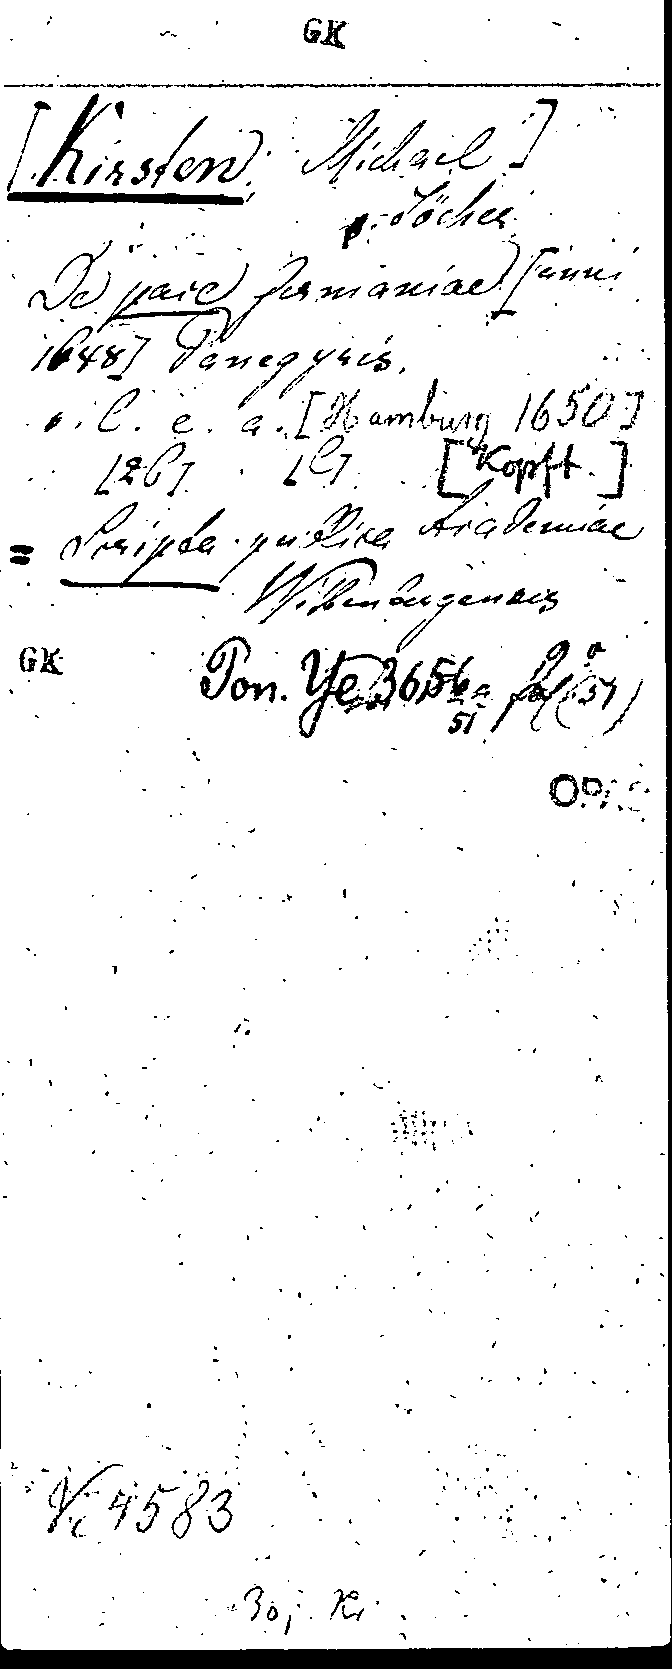 GK
[Kirsten, Michael]
s. Jöcher
De pace Germaniae [anni
1648] Panegyris.
s. l. e. a. [Hamburg 1650]
[Kopft.]
= Scripta publica Academiae
Wittenbergensis
GK Pon. Ye 3656
51
4583
30j Ki